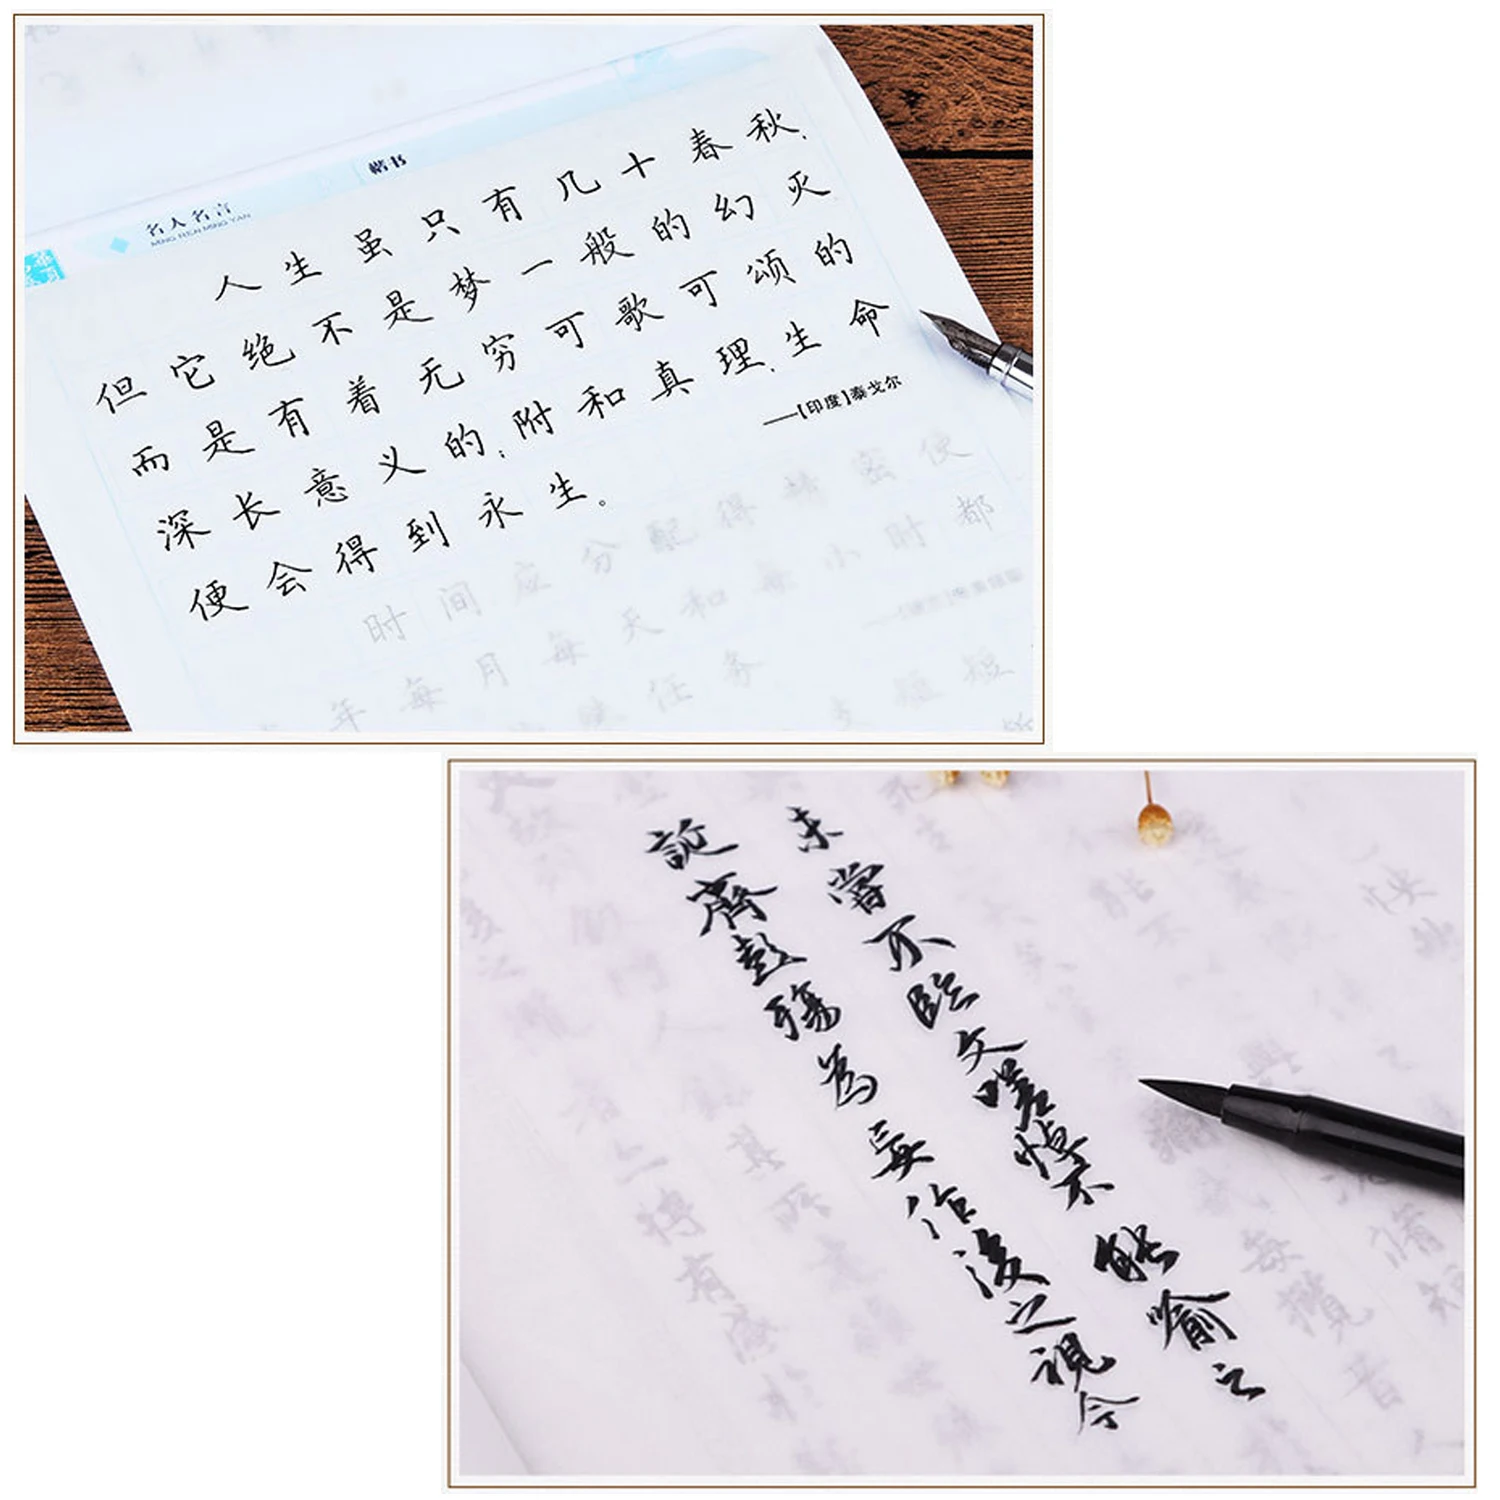 楷书
名人名言
MING REN MING YAN
人生虽只有几十春秋,
但它绝不是梦一般的幻灭,
而是有着无穷可歌可颂的
深长意义的;附和真理,生命
便会得到永生。
——【印度】泰戈尔
时间应分配得精密使
年每月每天和每小时都
任务
未尝不臨文嗟悼不能喻之
誕齊彭殤為妄作後之視今